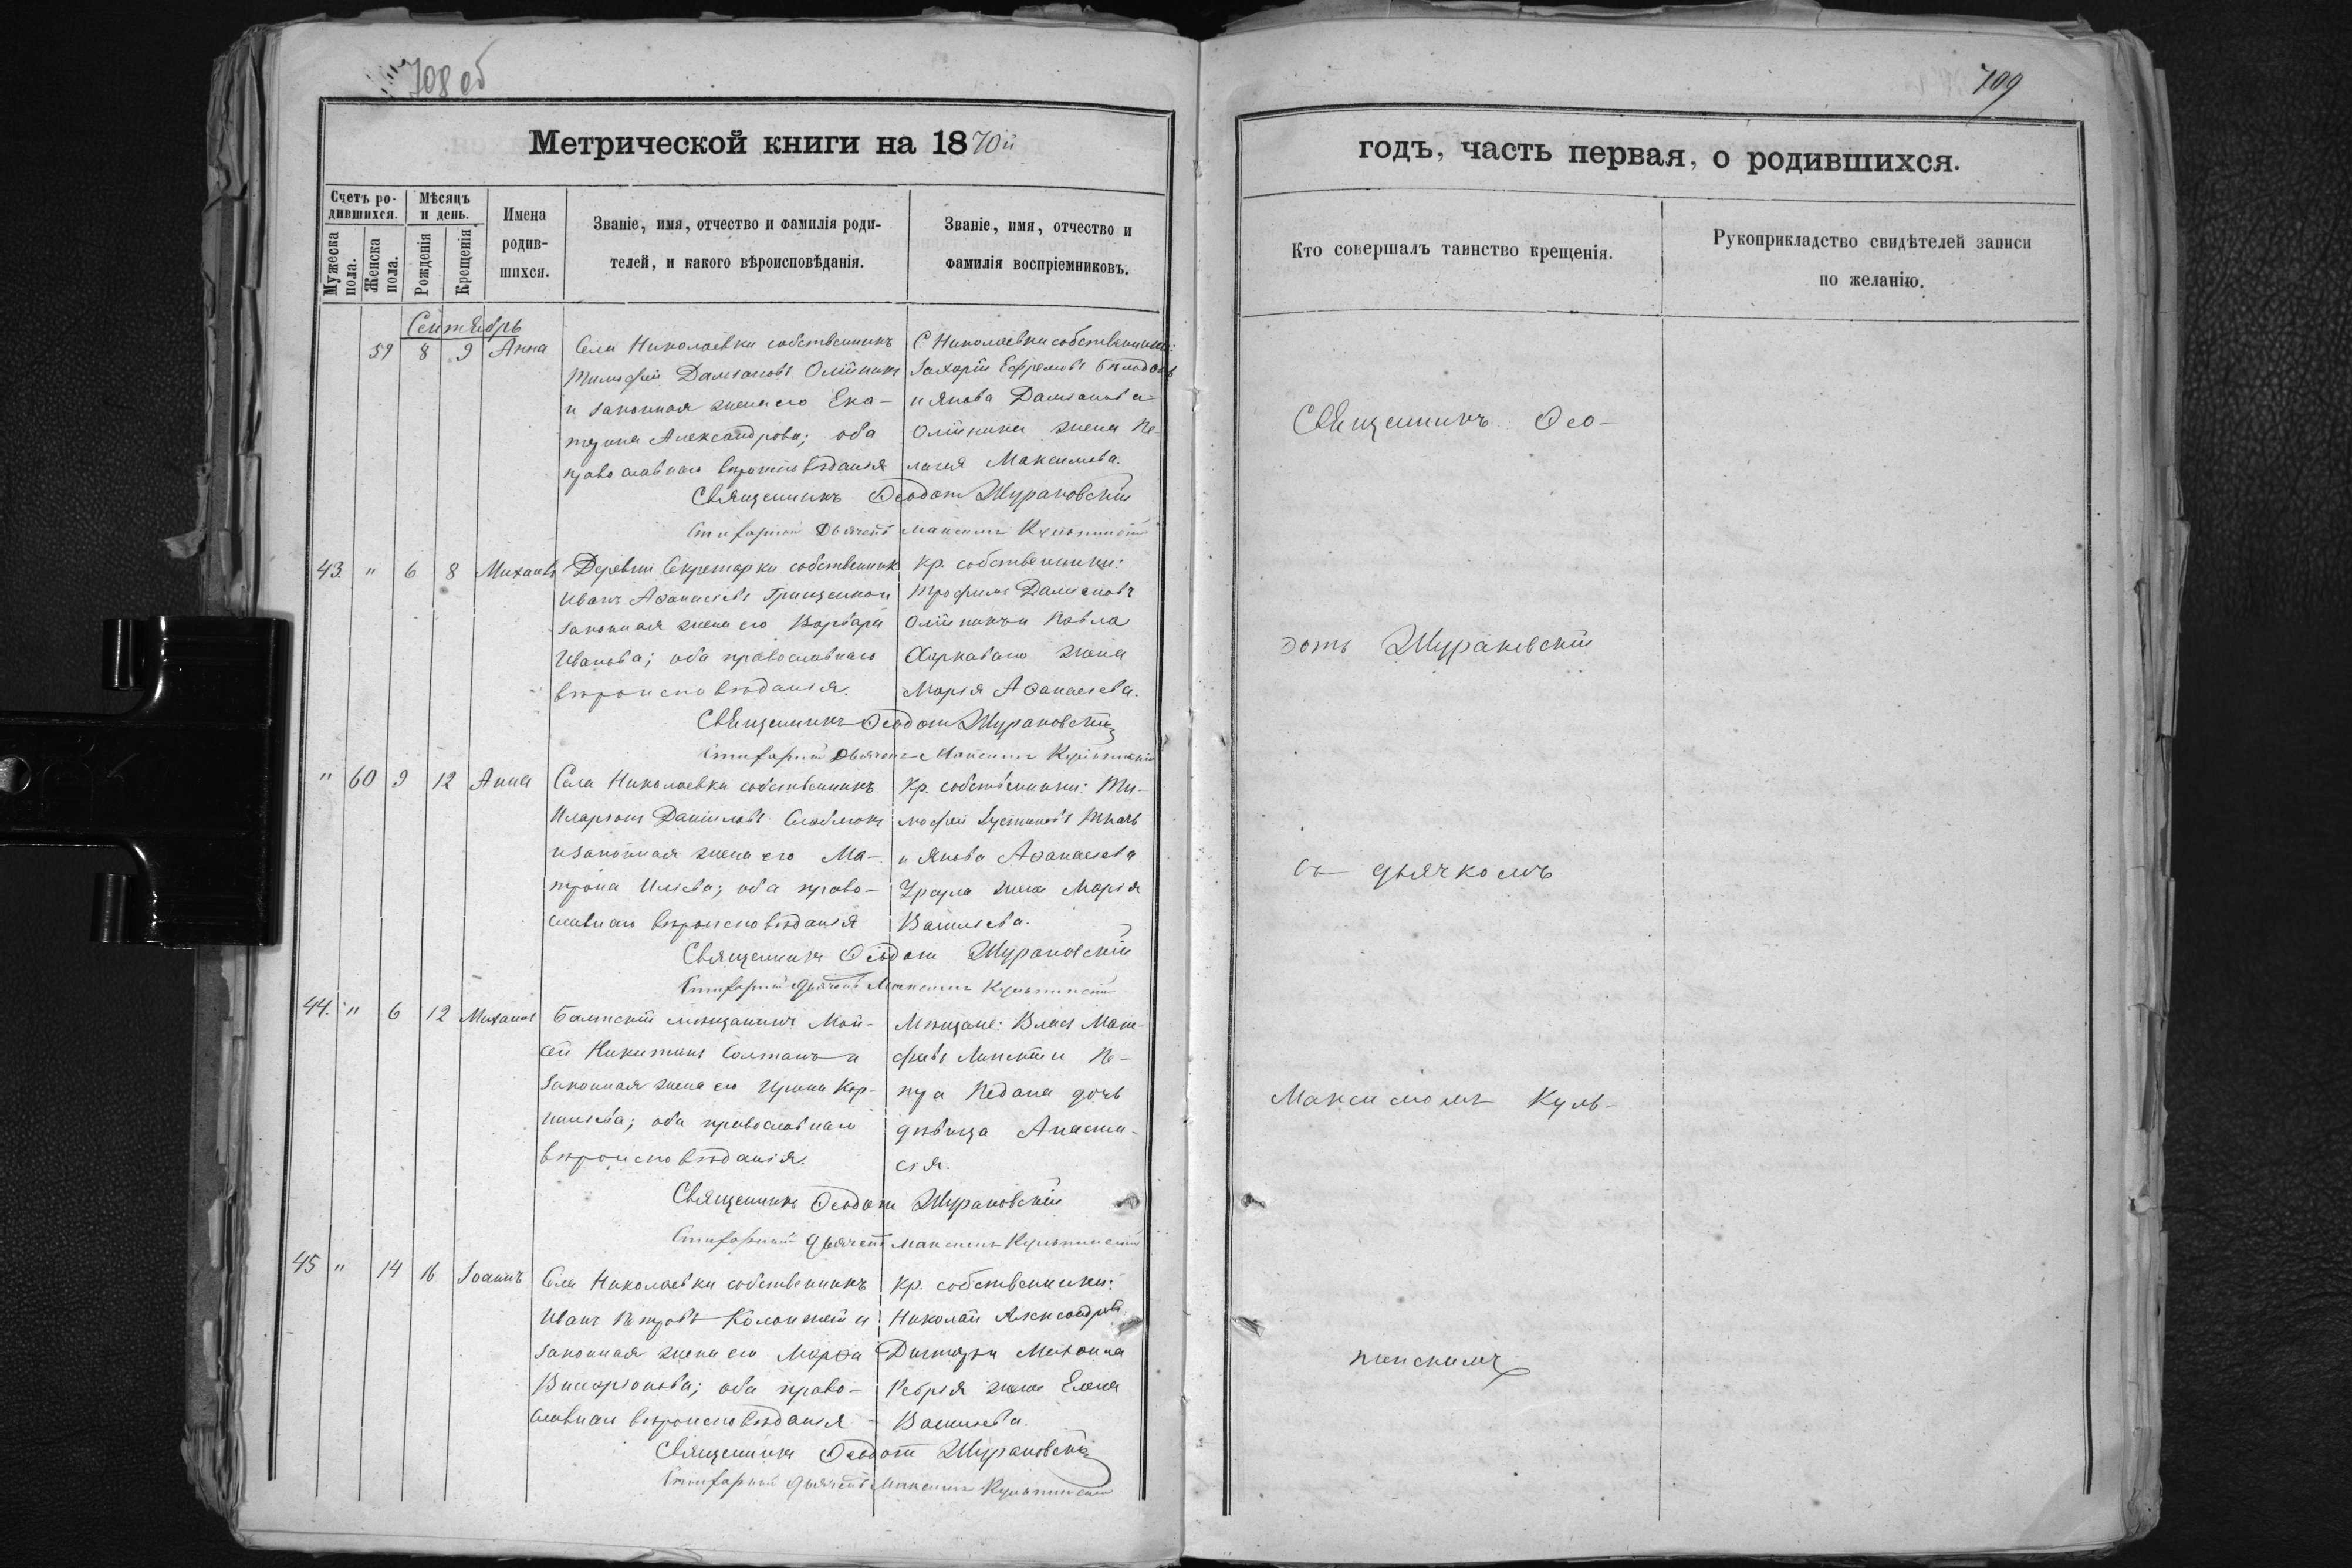 708 об
Метрической книги на 1870й
Счетъ ро-
дившихся.
Мѣсяцъ
и день.
Мужеска
пола.
Женска
пола.
Рожденія
Крещенія
Имена
родив-
шихся.
Званіе, имя, отчество и фамилія роди-
телей, и какого вѣроисповѣданія.
Званіе, имя, отчество и
фамилія воспріемниковъ.
Сентябрь
59 8 9 Анна
Села Николаевки собственникъ
Даміановъ Олійникъ
и законная жена его Ека-
терина Александрова; оба
православнаго вѣроисповѣданія
С. Николаевки собственники:
Захарій Ефремовъ
и Якова Даміанова
Олійника жена Пе-
лагія Максимова.
Священникъ Ѳеодотъ Жураковскій
Стихарный Дьячекъ Максимъ Кульпинскій
43. " 6 8 Михаилъ
Деревни Секретарки собственникъ
Иванъ Аѳанасіевъ Грищенко и
законная жена его Варвара
Иванова; оба православнаго
вѣроисповѣданія.
Кр. собственники:
Трофимъ Даміановъ
Олійникъ и Павла
жена
Марія Аѳанасіева.
Священникъ Ѳеодотъ Жураковскій
Стихарный Дьячекъ Максимъ Кульпинскій
" 60 9 12 Анна
Села Николаевки собственникъ
Иларіонъ Даніиловъ Слободянюкъ
и законная жена его Ма-
трона Иліева; оба право-
славнаго вѣроисповѣданія
Кр. собственники: Ти-
мофей Іустиновъ Ткачъ
и Якова Аѳанасіева
жена Марія
Васильева.
Священникъ Ѳеодотъ Жураковскій
Стихарный дьячекъ Максимъ Кульпинскій
44. " 6 12 Михаилъ
Балтскій мѣщанинъ Мой-
сей Никитинъ Солтанъ и
законная жена его Ирина Кор-
ниліева; оба православнаго
вѣроисповѣданія.
Мѣщане: Власъ Мат-
фѣевъ и Пе-
тра дочь
дѣвица Анаста-
сія.
Священникъ Ѳеодотъ Жураковскій
Стихарный дьячекъ Максимъ Кульпинскій
45 " 14 16 Іоаннъ
Села Николаевки собственникъ
Иванъ Петровъ и
законная жена его Марѳа
Виссаріонова; оба право-
славнаго вѣроисповѣданія
Кр. собственники:
Николай Александровъ
Михаила
жена Елена
Васильева.
Священникъ Ѳеодотъ Жураковскій
Стихарный дьячекъ Максимъ Кульпинскій
709
годъ, часть первая, о родившихся.
Кто совершалъ таинство крещенія.
Рукоприкладство свидѣтелей записи
по желанію.
Священникъ Ѳео-
дотъ Жураковскій
съ дьячкомъ
Максимомъ Куль-
пинскимъ